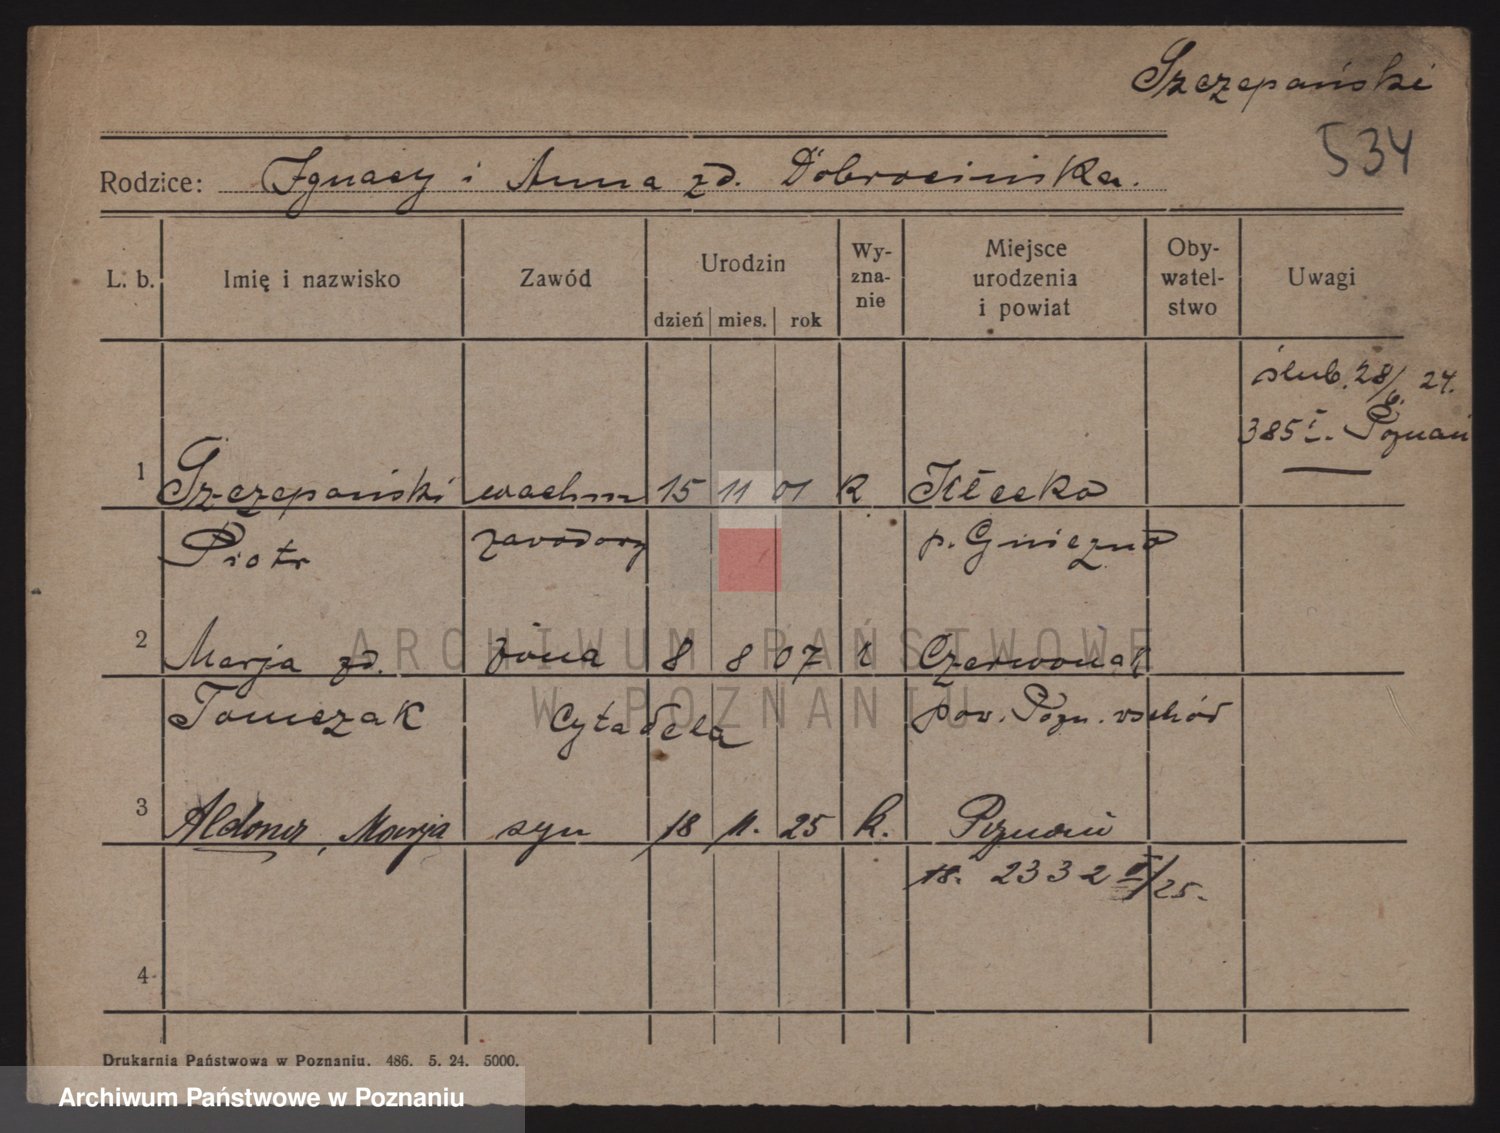 Szczepański
534
Rodzice: Ignacy i Anna zd. Dobrosińska.
L. b. Imię i nazwisko Zawód Urodzin dzień mies. rok Wy-zna-nie Miejsce urodzenia i powiat Oby-watel-stwo Uwagi
ślub. 28/6. 24.
385 I. Poznań
1 Szczepański wachm 15 11 01 k Kłecko
Piotr zawodowy p. Gniezno
2 Marja zd. żona 8 8 07 k Czerwonak
Tomczak Cytadela pow. Pozn. wschód
3 Aldona, Marja syn 18 11. 25 k. Poznań
18. 2332 II/25.
4
Drukarnia Państwowa w Poznaniu. 486. 5. 24. 5000.
ARCHIWUM PAŃSTWOWE
W POZNANIU
Archiwum Państwowe w Poznaniu